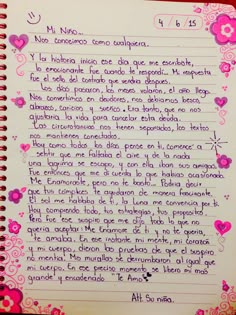 4 / 6 / 15
Mi Niño...
Nos conocimos como cualquiera.
Y la historia inicio ese día que me escribiste,
lo emocionante fue cuando te respondí... Mi respuesta
fue el sello del contrato que vendria despues.
Los días pasaron, los meses volaron, el año llego.
Nos convertimos en deudores, nos debiamos besos,
abrazos, caricias y sueños. Era tanto, que no nos
ajustaria la vida para cancelar esta deuda.
Las circustancias nos tienen separados, los textos
nos mantienen conectados.
Hoy como todos los días pense en ti, comence a
sentir que me faltaba el aire y de la nada
una lagrima se escapo, y con ella iban sus amigas.
Fue entonces que me di cuenta lo que habias ocasionado.
Me Enamoraste, pero no te basto. Podría decir
que tus complices te ayudaron de manera inconciente.
El sol me hablaba de ti, la Luna me convencia por ti.
Hoy comprendo todo, tus estrategias, tus propositos.
Pero fue ese suspiro que me dijo todo lo que no
queria aceptar: Me Enamore de ti y no te queria,
te amaba. En ese instante mi mente, mi corazón
y mi cuerpo, dieron las pruebas de que el suspiro
no mentia. Mis murallas se derrumbaron al igual que
mi cuerpo. En ese preciso momento se libero mi mas
grande y encadenado "Te Amo"
Att: Su niña.